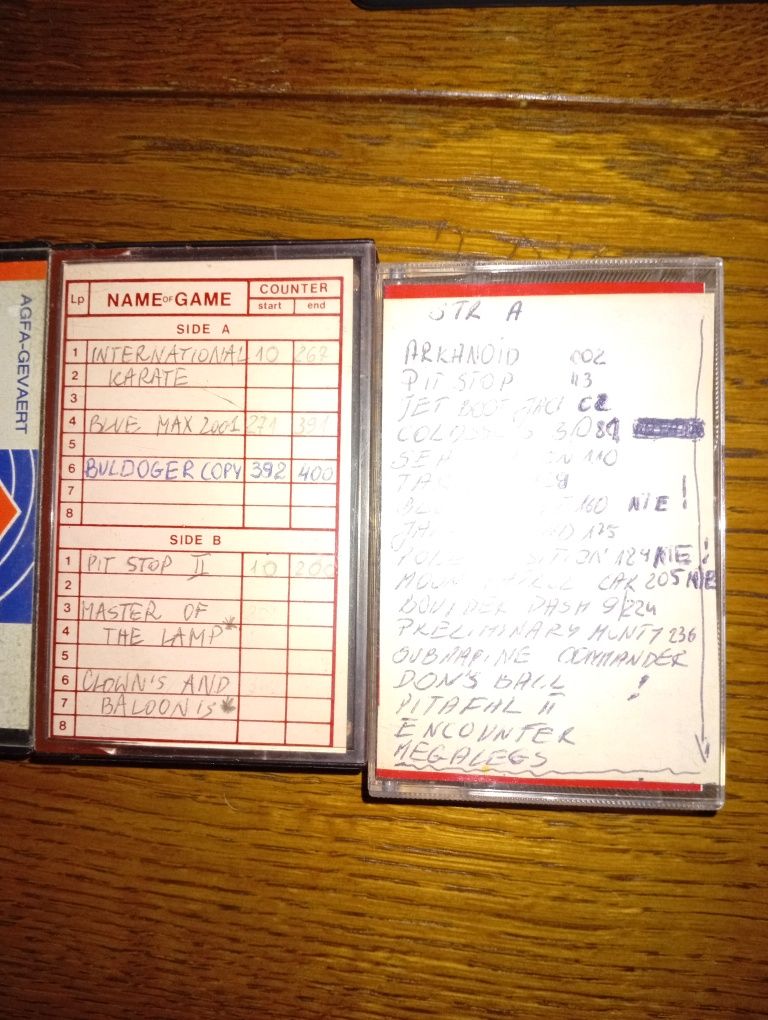 AGFA-GEVAERT
Lp NAME OF GAME COUNTER
start end
SIDE A
1 INTERNATIONAL 10 267
2 KARATE
3
4 BLUE MAX 2001 271 391
5
6 BULDOGER COPY 392 400
7
8
SIDE B
1 PIT STOP II 10 200
2
3 MASTER OF
4 THE LAMP*
5
6 CLOWN'S AND
7 BALOONIS*
8
STR A
ARKANOID 002
PIT STOP 43
JET BOOT
COLOSSUS
110
160 NIE!
125
124 NIE!
CAR 205 NIE
BOULDER DASH 9/224
PRELIMINARY MONTY 236
SUBMARINE COMMANDER
DON'S BALL !
PITAFAL II
ENCOUNTER
MEGALEGS